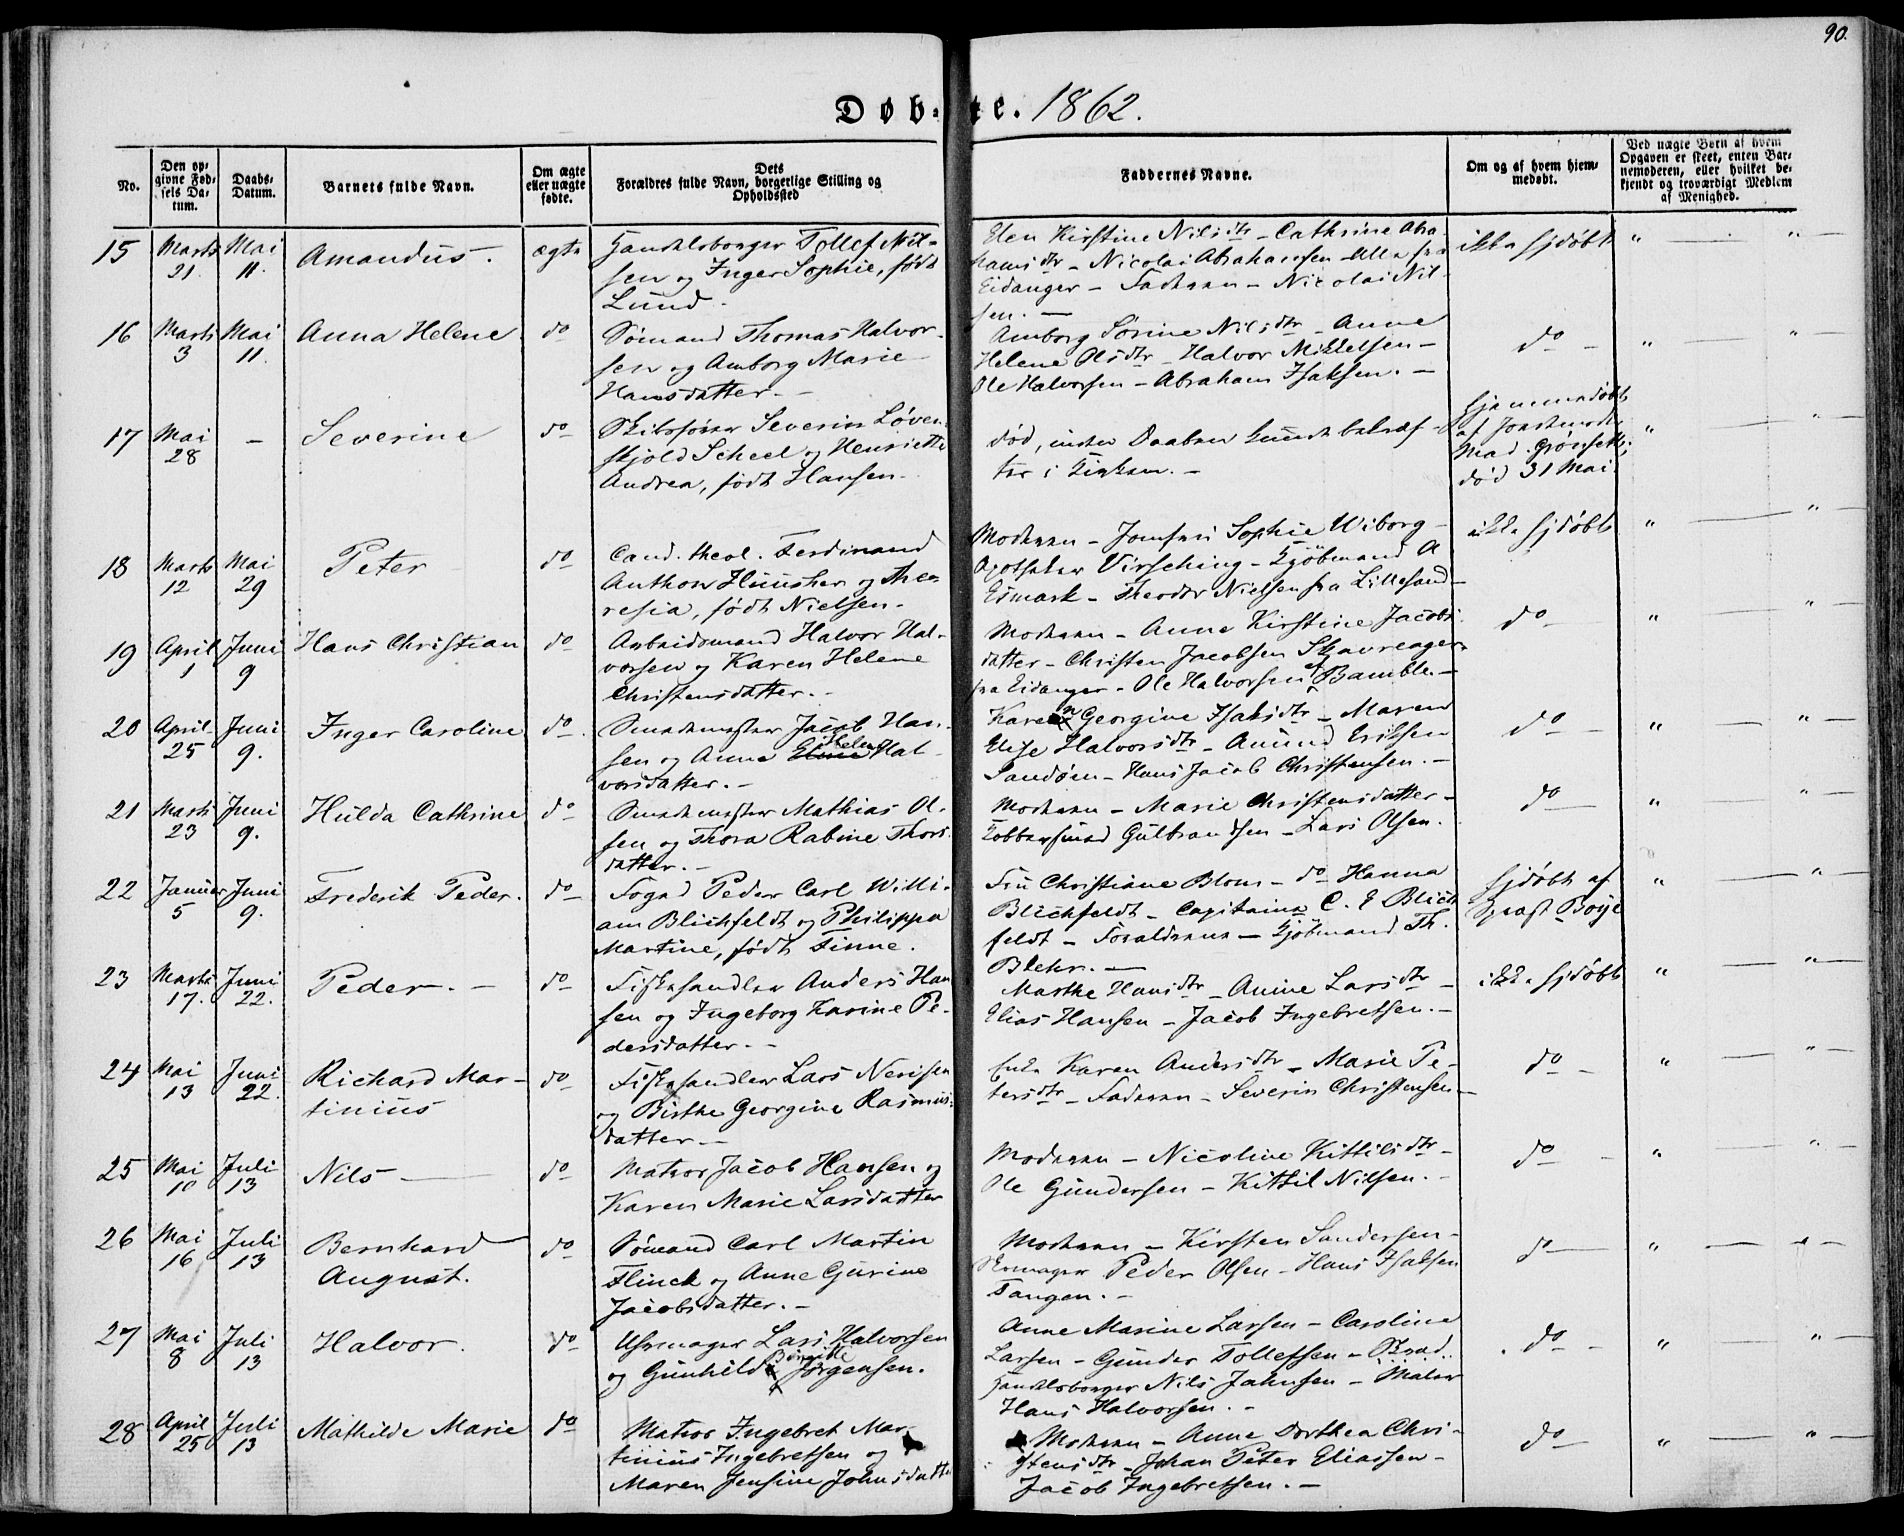 90.
Døb-te. 1862.
No.
Den opgivne Fødsels Datum.
Daabs-Datum.
Barnets fulde Navn.
Om ægte eller uægte fødte.
Dets Forældres fulde Navn, borgerlige Stilling og Opholdssted
Faddernes Navne.
Om og af hvem hjemmedøbt.
Ved uægte Børn af hvem Opgaven er skeet, enten Barnemoderen, eller hvilket bekjendt og troværdigt Medlem af Menighed.
15 Marts 21. Mai 11. Amandus. ægte
Handelsborger Tollef Nil-
sen og Inger Sophie, født
Lund.
Elen Kirstine Nilsdtr - Cathrine Abra-
hamsdtr - Nicolai Abrahamsen alle fra
Eidanger - Faderen - Nicolai Nil-
sen. -
ikke hjdøbt " "
16 Marts 3 Mai 11. Anna Helene do
Sømand Thomas Halvor-
sen og Amborg Marie
Hansdatter. -
Amborg Sørine Nilsdtr - Anne
Helene Olsdtr - Halvor Mikkelsen -
Ole Halvorsen - Abraham Isaksen. -
do " "
17 Mai 28 - Severine do
Skibsfører Severin Løven-
skjold Scheel og Henriette
Andrea, født Hansen.
død, inden Daaben kunde bekræf-
tes i Kirken. -
hjemmedøbt
af Jordmoder
Mad. Grönsett,
død 31 Mai.
" "
18 Marts 12 Mai 29 Peter do
Cand. theol. Ferdinand
Anthon Huusher og The-
resia, født Nielsen.
Moderen - Jomfru Sophie Wiborg -
Apotheker Virsching - Kjöbmand A
Esmark - Theodor Nielsen fra Lillesand -
ikke hjdøbt " "
19 April 1 Juni 9 Hans Christian do
Arbeidsmand Halvor Hal-
vorsen og Karen Helene
Christensdatter. -
Moderen - Anne Kirstine Jacobs-
datter - Christen Jacobsen Skavreager
fra Eidanger - Ole Halvorsen af Bamble. -
do " "
20 April 25 Juni 9. Inger Caroline do
Smedemester Jacob Han-
sen og Anne Helene Hal-
vorsdatter. -
Karen Georgine Isaksdtr - Maren
Elise Halvorsdtr - Amund Eriksen
Sandøen - Hans Jacob Christensen. -
do " "
21 Marts 23 Juni 9. Hulda Cathrine do
Smedemester Mathias Ol-
sen og Thora Rabine Thors-
datter. -
Moderen - Marie Christensdatter -
Kobbersmed Gulbrandsen - Lars Olsen.
do " "
22 Januar 5 Juni 9. Frederik Peder. do
Foged Peder Carl Willi-
am Blichfeldt og Philippa
Martine, født Finne.
Fru Christiane Blom - do Hanna
Blichfeldt - Capitaine C. E Blich
feldt - Forældrene - Kjöbmand Th.
Blehr. -
hjdøbt af
Sprgst Boye
" "
23 Marts 17. Juni 22. Peder. - do
Fiskehandler Anders Han
sen og Ingeborg Karine Pe-
dersdatter. -
Marthe Hansdtr - Anine Larsdtr -
Elias Hansen - Jacob Ingebretsen. -
ikke hjdøbt " "
24 Mai 13 Juni 22. Richard Mar-
tinius do
Fiskehandler Lars Nerisen
og Birthe Georgine Rasmus-
datter. -
Enke Karen Andersdtr - Marie Pe-
tersdtr - Faderen - Severin Christensen -
do " "
25 Mai 10 Juli 13 Nils - do
Matros Jacob Hansen og
Karen Marie Larsdatter
Moderen - Nicoline Kittilsdtr -
Ole Gundersen - Kittil Nilsen. -
do " "
26 Mai 16 Juli 13 Bernhard
August. do
Sømand Carl Martin
Flinck og Anne Gurine
Jacobsdatter. -
Moderen - Kirsten Sandersen -
Skomager Peder Olsen - Hans Isaksen
Tangen. -
do " "
27 Mai 8 Juli 13 Halvor. do
Uhrmager Lars Halvorsen
og Gunhild Birgitte Jørgensen.
Anne Marine Larsen - Caroline
Larsen - Gunder Tollefsen - Brad.
Handelsborger Nils Jahnsen - Maler
Hans Halvorsen. -
do " "
28 April 25 Juli 13 Mathilde Marie do
Matros Ingebret Mar-
tinius Ingebretsen og
Maren Jensine Johnsdatter
Moderen - Anne Dorthea Chri-
stensdtr - Johan Peter Eliassen -
Jacob Ingebretsen. -
do " "